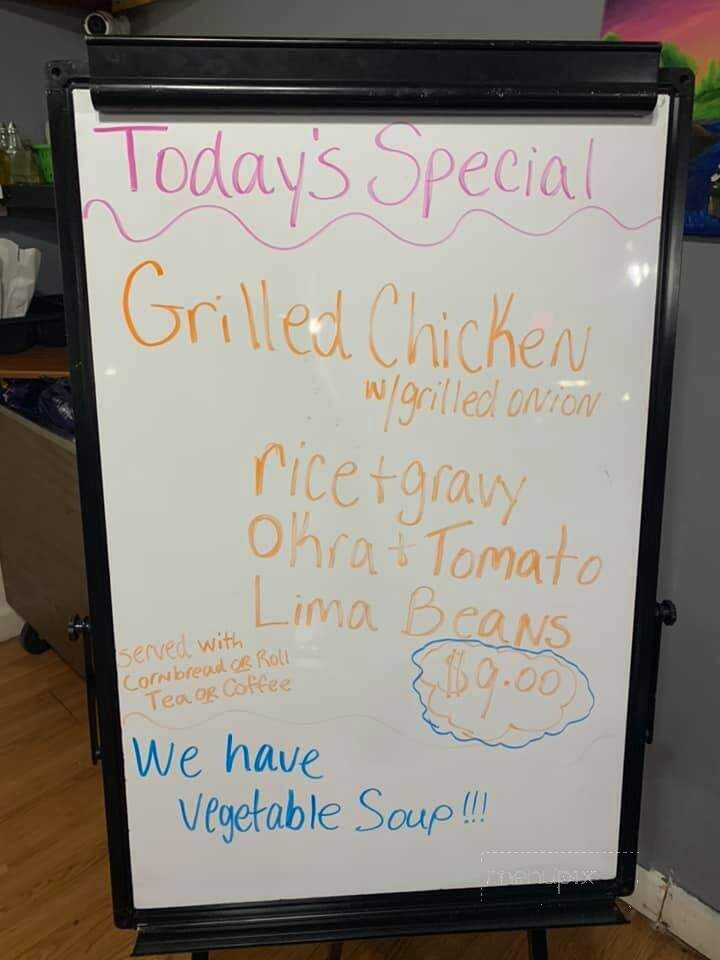 Today's Special
Grilled Chicken
w/grilled onion
rice + gravy
Okra + Tomato
Lima Beans
Served with
Cornbread OR Roll
Tea OR Coffee
$9.00
We have
Vegetable Soup!!!
menupix